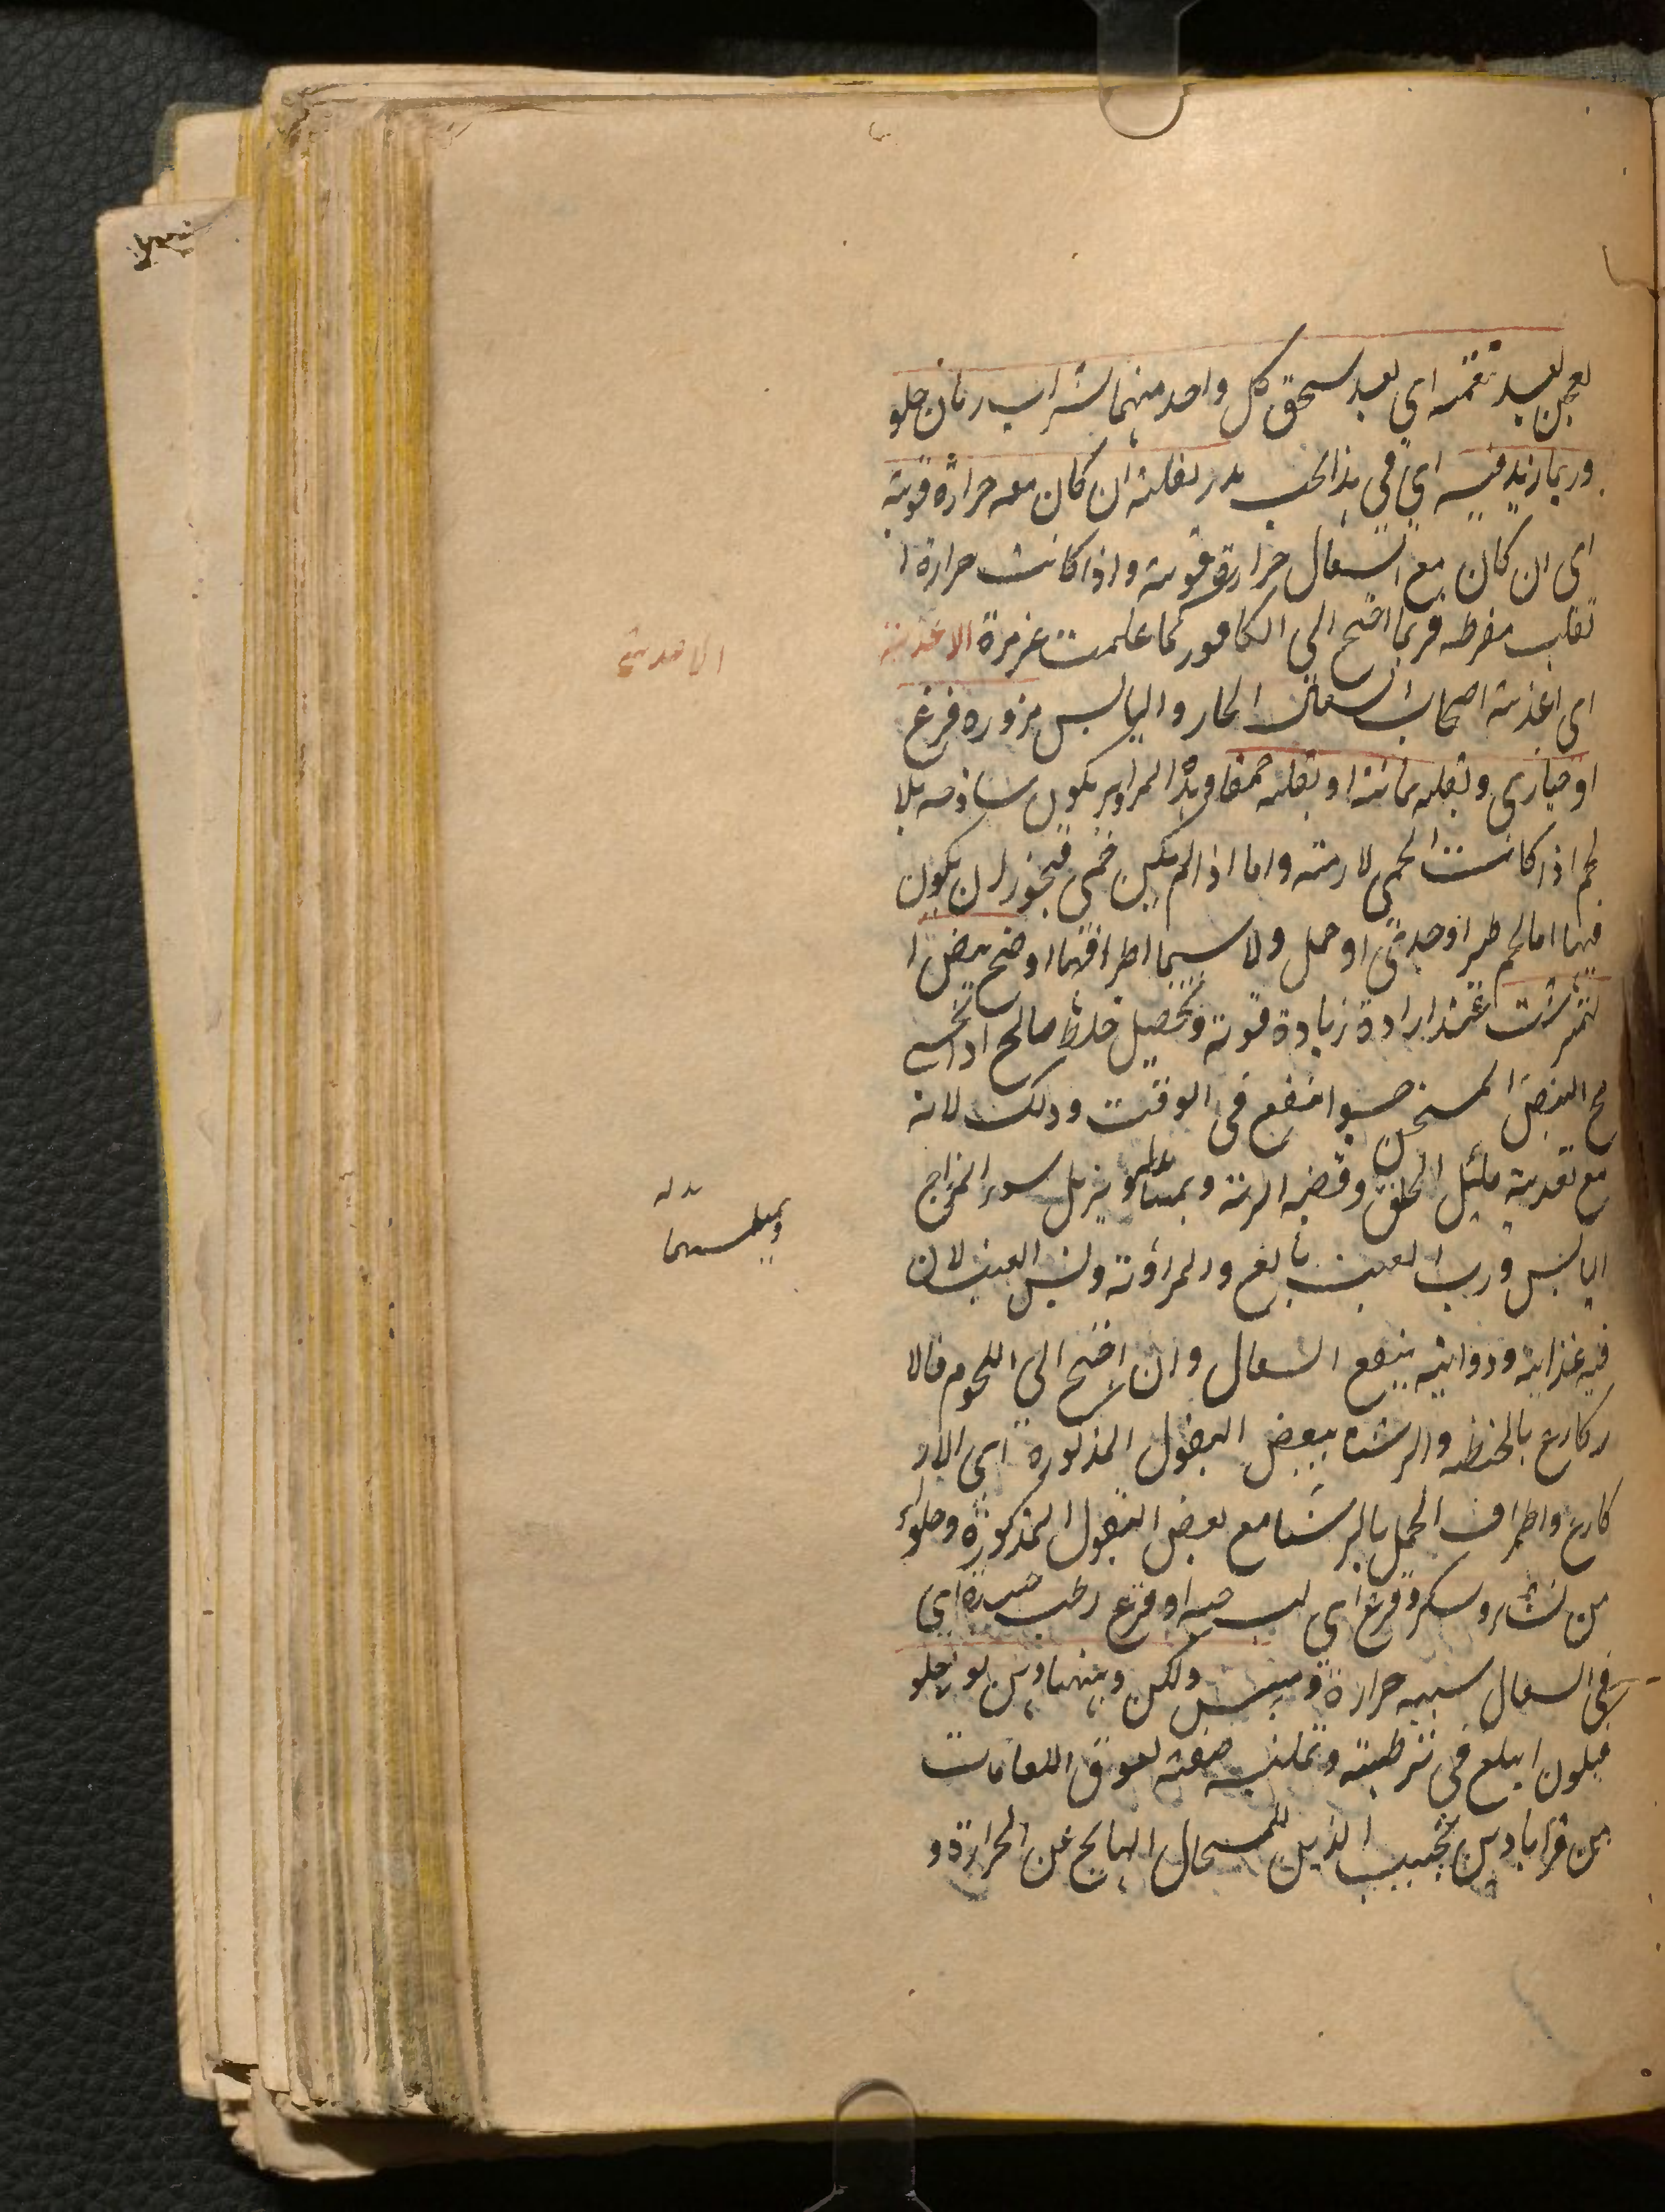 يعجن بعد تنقيته اي بعد سحق كل واحد منهما بشراب رمان حلو
وربما زيد فيه اي في هذا الحب بذر بقلة ان كان معه حرارة قوية
اي ان كان مع السعال حرارة قوية واذا كانت حرارة ا
لقلب مفرطه فربما احتيج الى الكافور كما علمت الاغذية
اي اغذية اصحاب السعال الحار واليابس مزوره قرع
او خبازى وبقلة يمانية او بقلة حمقا وهذا المزاوير يكون ساذجه بلا
لحم اذا كانت الحمى لازمة واما اذا لم يكن حمى فيجوز ان يكون
فيها اما لحم طير او جدي او حمل ولا سيما اطرافهما او مح بيض ا
لنمبرشت عند ارادة زيادة قوته وتحصيل خلط صالح اذا تحسى
مح البيض المسخن حسوا انتفع في الوقت وذلك لانه
مع تغذيته مليّن الحلق وقصبه الرية ويزيل سوء المزاج
اليابس ورب العنب نافع والمراد لان
فيه غذائية ودوائية ينفع السعال وان احتيج الى اللحوم فالا
كارع بالحنطه والرشته ببعض البقول المذكوره اي الا
كارع واطراف الحمل بالرشتا مع بعض البقول المذكوره وحلواء
من نشا وسكر وقرع اي لب حبه او قرع رطب جيدة اي
في السعال سببه حرارة ويبس ولكن دهنها دهن لوز حلو
فيكون ابلغ في ترطيبه وتليينه صفة لعوق اللعابات
من قراباذين نجيب الدين للسعال الهايج عن الحرارة و
الاغذية